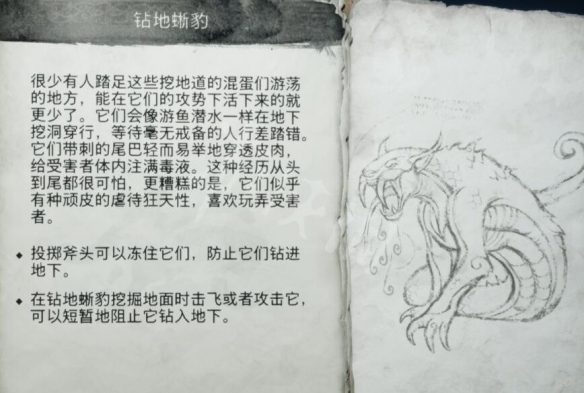 钻地蜥豹
很少有人踏足这些挖地道的混蛋们游荡
的地方，能在它们的攻势下活下来的就
更少了。它们会像游鱼潜水一样在地下
挖洞穿行，等待毫无戒备的人行差踏错。
它们带刺的尾巴轻而易举地穿透皮肉，
给受害者体内注满毒液。这种经历从头
到尾都很可怕，更糟糕的是，它们似乎
有种顽皮的虐待狂天性，喜欢玩弄受害
者。
◆ 投掷斧头可以冻住它们，防止它们钻进
地下。
◆ 在钻地蜥豹挖掘地面时击飞或者攻击它，
可以短暂地阻止它钻入地下。